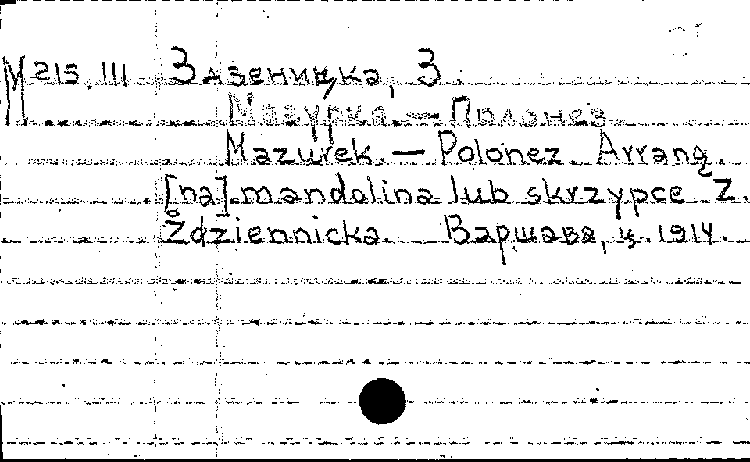 M 215.III Здзеницка, З.
Мазурка — Полонез
Mazurek. — Polonez. Arrang.
[na] mandolina lub skrzypce Z.
Ździennicka. Варшава, ц. 1914.